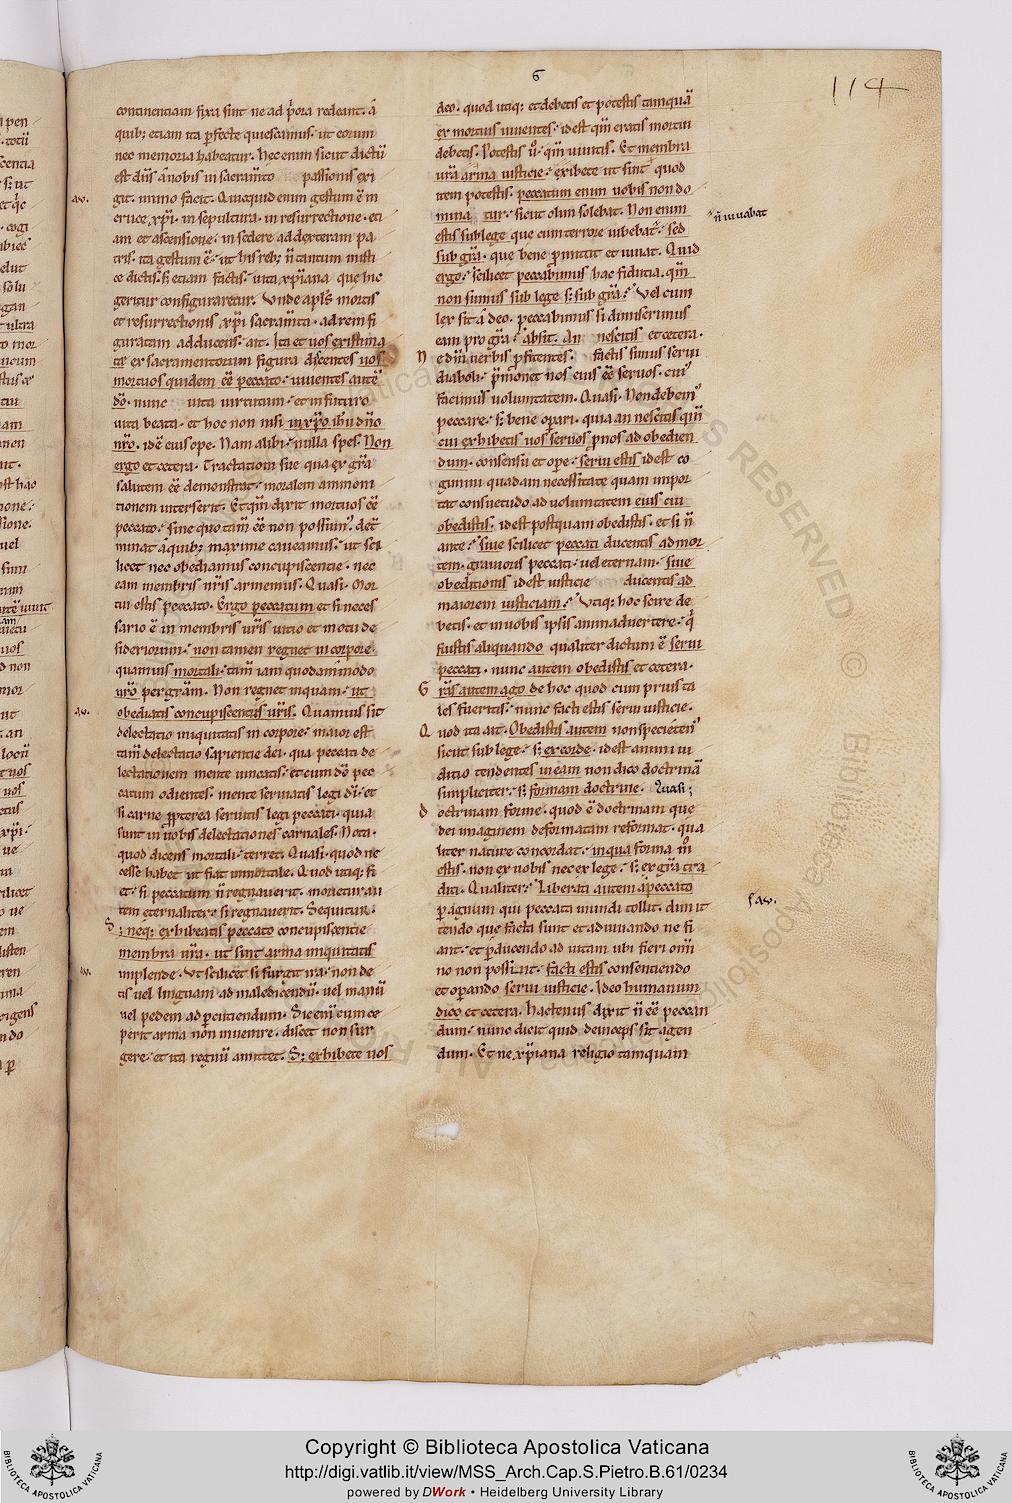 6
114
continentiam fixa sint ne ad p̓ora redeant. á
quib; etiam ita ꝑfecte quiescamus. ut eorum
nec memoria habeatur. Hec enim sicut dictū
est dn̄s a nobis in sacram̄to passionis exi
git. immo facit. Quicquid enim gestum ē in
cruce xp̄i. in sepultura. in resurrectione. eti
am et ascensione. in sedere ad dexteram pa
tris. ita gestum ē. ut his reb; n̄ tantum misti
ce dictis. s; etiam factis. uita xp̄iana que hic
geritur configuraretur. Unde apl̄s mortis
et resurrectionis xp̄i sacram̄ta. ad rem fi
guratam adducens. ait. Ita et uos existima
te ex sacramentorum figura dicentes uos
mortuos quidem eē peccato. uiuentes autē
dō. nunc uita uirtutum. et in futuro
uita beata. et hoc non nisi in xp̄o ih̄u dn̄o
nr̄o. id ē eius ope. Nam alibi nulla spes. Non
ergo et cetera. Tractationi sue qua ex gr̄a
salutem eē demonstrat. moralem ammoni
tionem interserit. Et qm̄ dixit mortuos eē
peccato. sine quo tam̄ eē non possum᾿. det̄
minat a quib; maxime caueamus. ut sci
licet nec obediamus concupiscentie. nec
eam membris nr̄is armemus. Quasi. Mor
tui estis peccato. Ergo peccatum et si neces
sario ē in membris ur̄is uitio et motu de
sideriorum. non tamen regnet in corpore.
quamuis mortali. tam̄ iam quodammodo
ur̄o per gr̄am. Non regnet inquam. ut
obediatis concupiscentiis ur̄is. Quamuis sit
delectatio iniquitatis in corpore. maior est
tam̄ delectatio sapientie dei. qua peccati de
lectationem mente uincatis. et cum dō pec
catum odientes. mente seruiatis legi dī. et
si carne ꝓpterea seruitis legi peccati. quia
sunt in uobis delectationes carnales. Nota.
quod dicens mortali. terret. Quasi. quod ne
cesse habet ut fiat inmortale. Quod utiq; fi
et. si peccatum n̄ regnauerit. morietur au
tem eternaliter. si regnauerit. Sequitur.
S; neq; exhibeatis peccato concupiscentie
membra ur̄a. ut sint arma iniquitatis
implende. Ut scilicet si surgit ira. non de
tis uel linguam ad maledicendū. uel manū
uel pedem ad ꝑcutiendum. Sic enī cum ce
perit arma non inuenire. discet non sur
gere. et ita regnū amittet. S; exhibete uos
deo. quod utiq; et debetis et potestis tamquā
ex mortuis uiuentes. id est qm̄ eratis mortui
debetis. Potestis u᾿. qm̄ uiuitis. Et membra
ur̄a arma iusticie. exibete ut sint quod
item potestis. peccatum enim uobis non do
mina tur. sicut olim solebat. Non enim
estis sub lege que cum terrore iubebat. sed n̄ iuuabat
sub gr̄a. que bene ꝓmittit et iuuat. Quid
ergo. scilicet peccabimus hac fiducia. qm̄
non sumus sub lege s; sub gr̄a. Vel cum
lex sit a deo. peccabimus si dimiserimus
eam pro gr̄a. absit. An nescitis et cetera.
Ne dm̄ uerbis ꝓfitentes. factis simus serui
diaboli. p̄monet nos eius eē seruos. cui᾿
facimus uoluntatem. Quasi. Non debem᾿
peccare. s; bene oꝑari. quia an nescitis qm̄
cui exhibetis uos seruos pnos ad obedien
dum. consensu et oꝑe. serui estis id est co
gimini quadam necessitate quam impor
tat consuetudo ad uoluntatem eius cui
obedistis. id est postquam obedistis. et si n̄
ante. siue scilicet peccati ducentis ad mor
tem. grauioris peccati. uel eternam. siue
obeditionis id est iusticie ducentis ad
maiorem iusticiam. Utiq; hoc scire de
betis. et in uobis ipsis animaduertere. q̓
fuistis aliquando. qualiter dictum ē serui
peccati. nunc autem obedistis et cetera.
Gr̄as autem ago de hoc quod cum prius ta
les fueritis. nunc facti estis serui iusticie.
Quod ita ait. Obedistis autem non specietem᾿
sicut sub lege. s; ex corde. id est animi iu
ditio tendentes in eam non dico doctrinā
simpliciter. s; formam doctrine. Quasi;
doctrinam forme. quod ē doctrinam que
dei imaginem deformatam reformat. qua
liter nature concordat. in qua forma m̄
estis. non ex uobis nec ex lege. s; ex gr̄a tra
diti. Qualiter. Liberati autem a peccato
ꝑ agnum qui peccata mundi tollit. dimit
tendo que facta sunt et adiuuando ne fi
ant. et ꝑducendo ad uitam ubi fieri om̄i
no non possi̅nt. facti estis consentiendo
et oꝑando serui iusticie. Ideo humanum
dico et cetera. Hactenus dixit n̄ eē peccan
dum. nunc dicit quid deinceps sit agen
dum. Et ne xp̄iana religio tamquam
Copyright © Biblioteca Apostolica Vaticana
http://digi.vatlib.it/view/MSS_Arch.Cap.S.Pietro.B.61/0234
powered by DWork • Heidelberg University Library
BIBLIOTECA APOSTOLICA VATICANA
BIBLIOTECA APOSTOLICA VATICANA